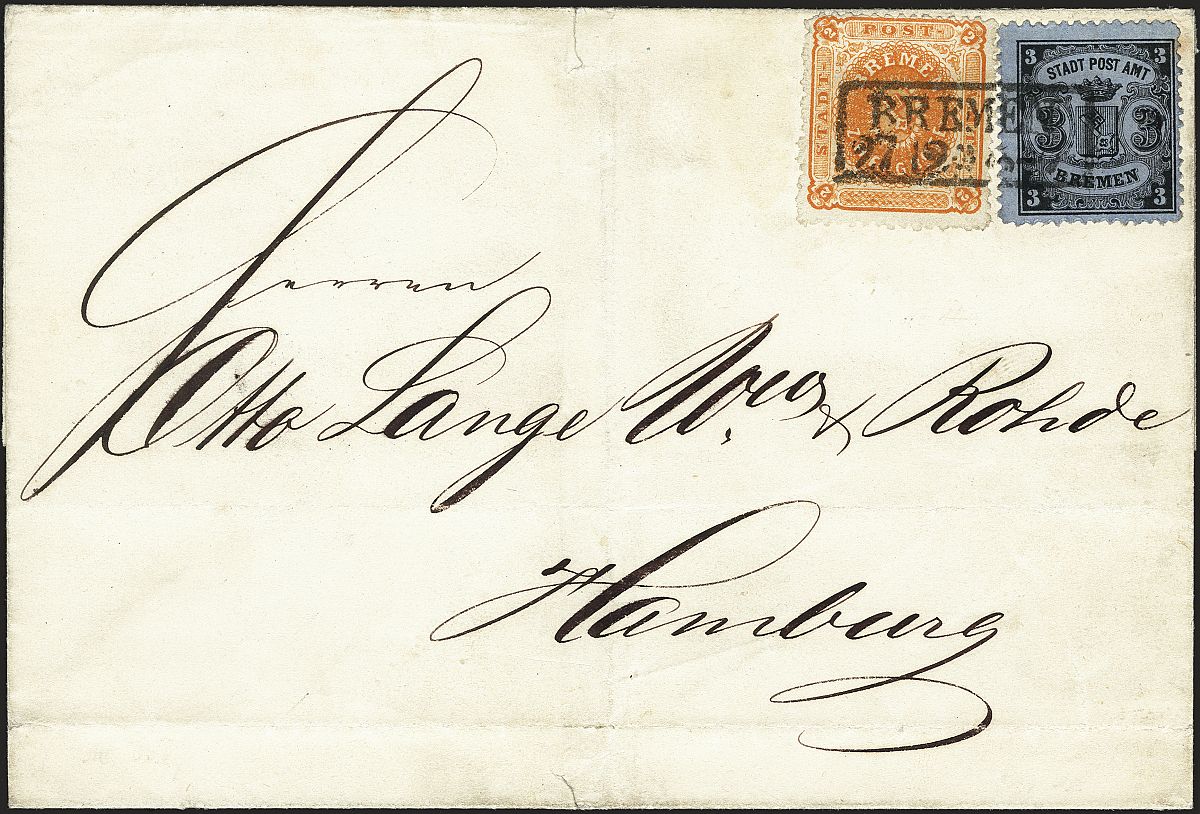 2 POST- 2
STADT
BREMEN
2 2
3 3
STADT POST AMT
3 3
BREMEN
3 3
BREMEN
27 12
Herren
Otto Lange Wwe & Rohde
Hamburg